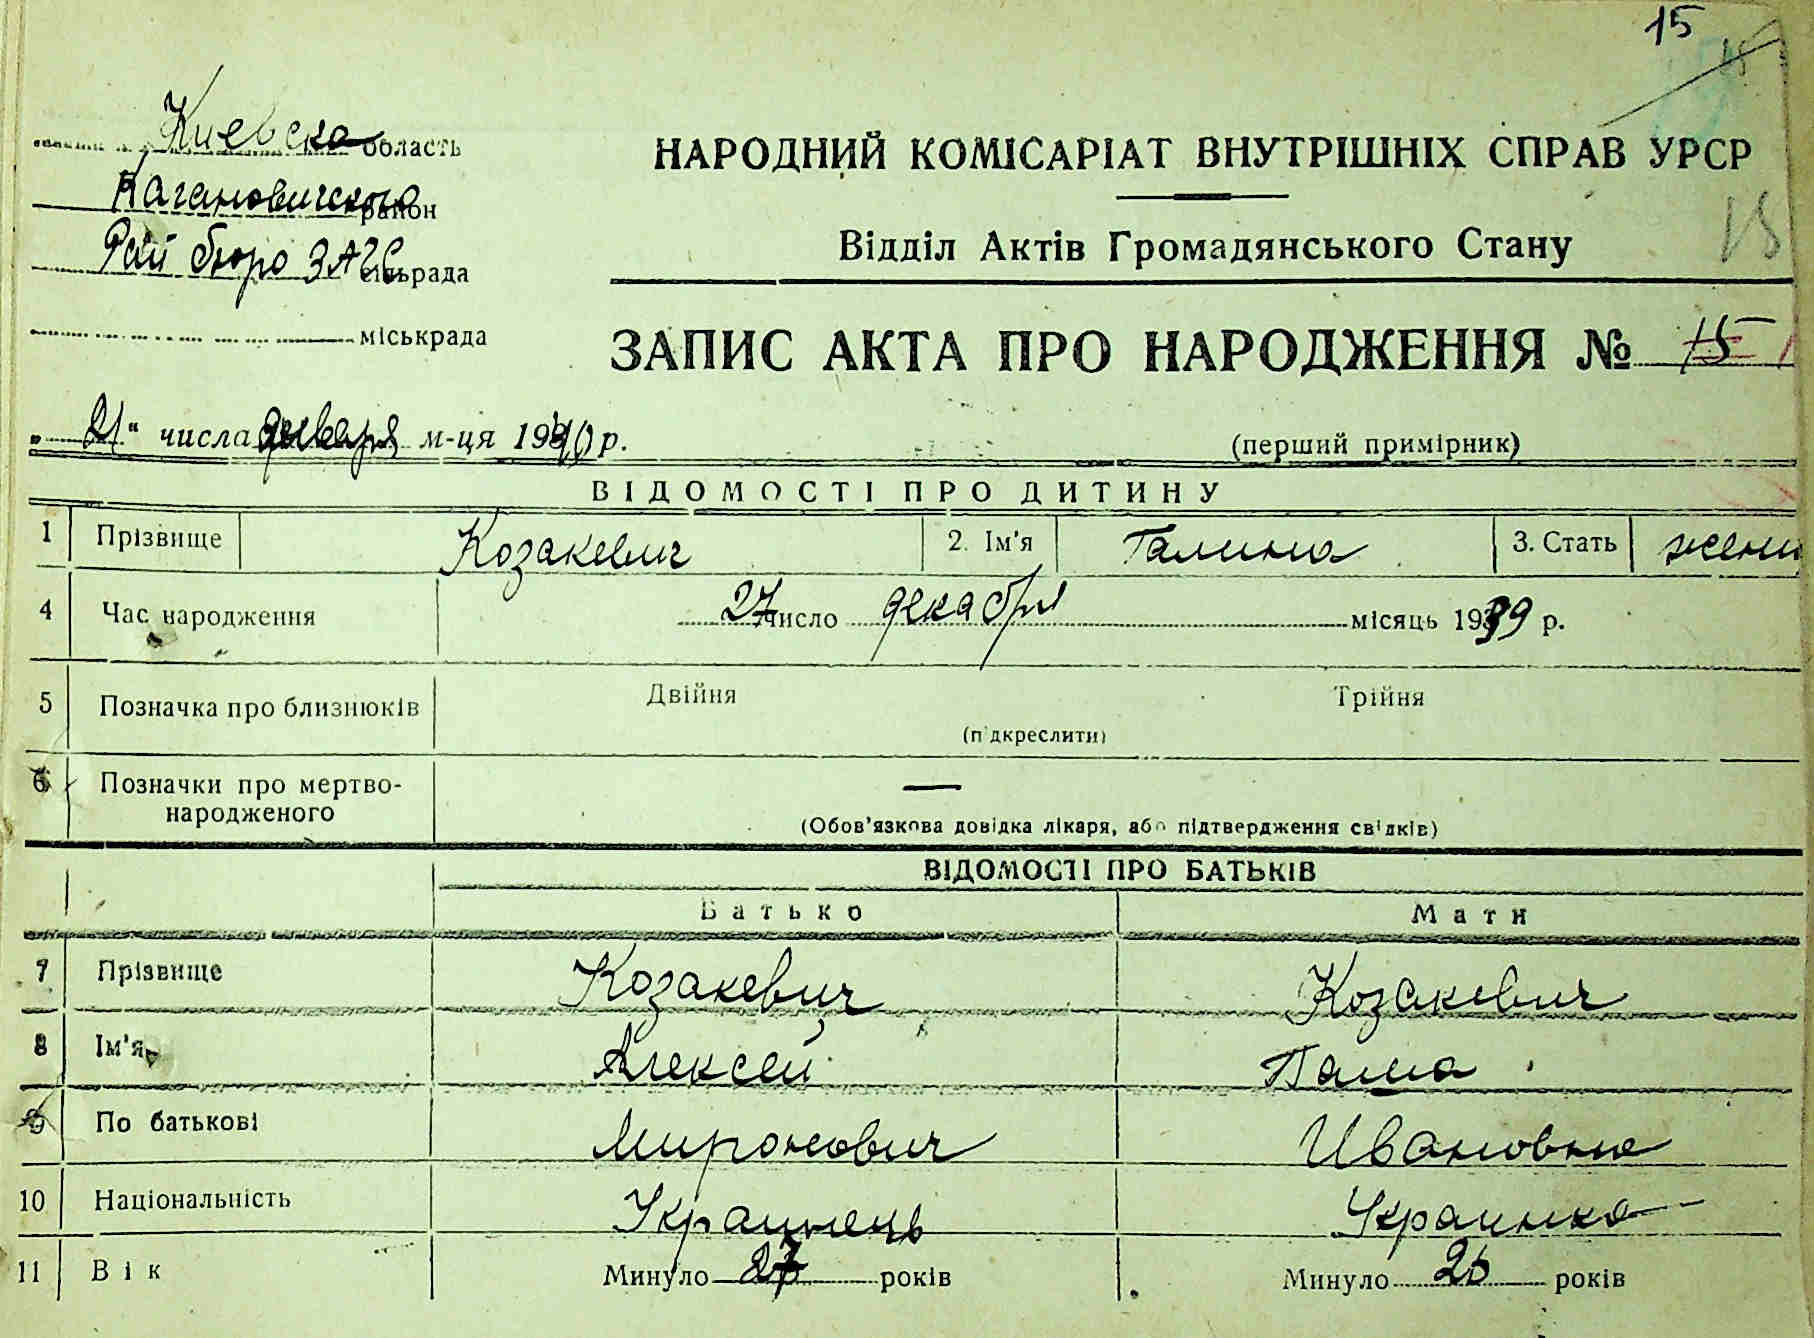 15
Киевска область
НАРОДНИЙ КОМІСАРІАТ ВНУТРІШНІХ СПРАВ УРСР
Кагановического район
15
Рай бюро ЗАГС сільрада
Відділ Актів Громадянського Стану
міськрада
ЗАПИС АКТА ПРО НАРОДЖЕННЯ № 15
„21“ числа января м-ця 1940 р.
(перший примірник)
ВІДОМОСТІ ПРО ДИТИНУ
1 Прізвище Козакевич 2. Ім'я Галина 3. Стать жени
4 Час народження 27 число декабря місяць 1939 р.
5 Позначка про близнюків Двійня Трійня
(підкреслити)
6 Позначки про мертво-
народженого —
(Обов'язкова довідка лікаря, або підтвердження свідків)
ВІДОМОСТІ ПРО БАТЬКІВ
Батько Мати
7 Прізвище Козакевич Козакевич
8 Ім'я Алексей
9 По батькові Миронович Ивановна
10 Національність Украинець Украинка
11 Вік Минуло 27 років Минуло 26 років